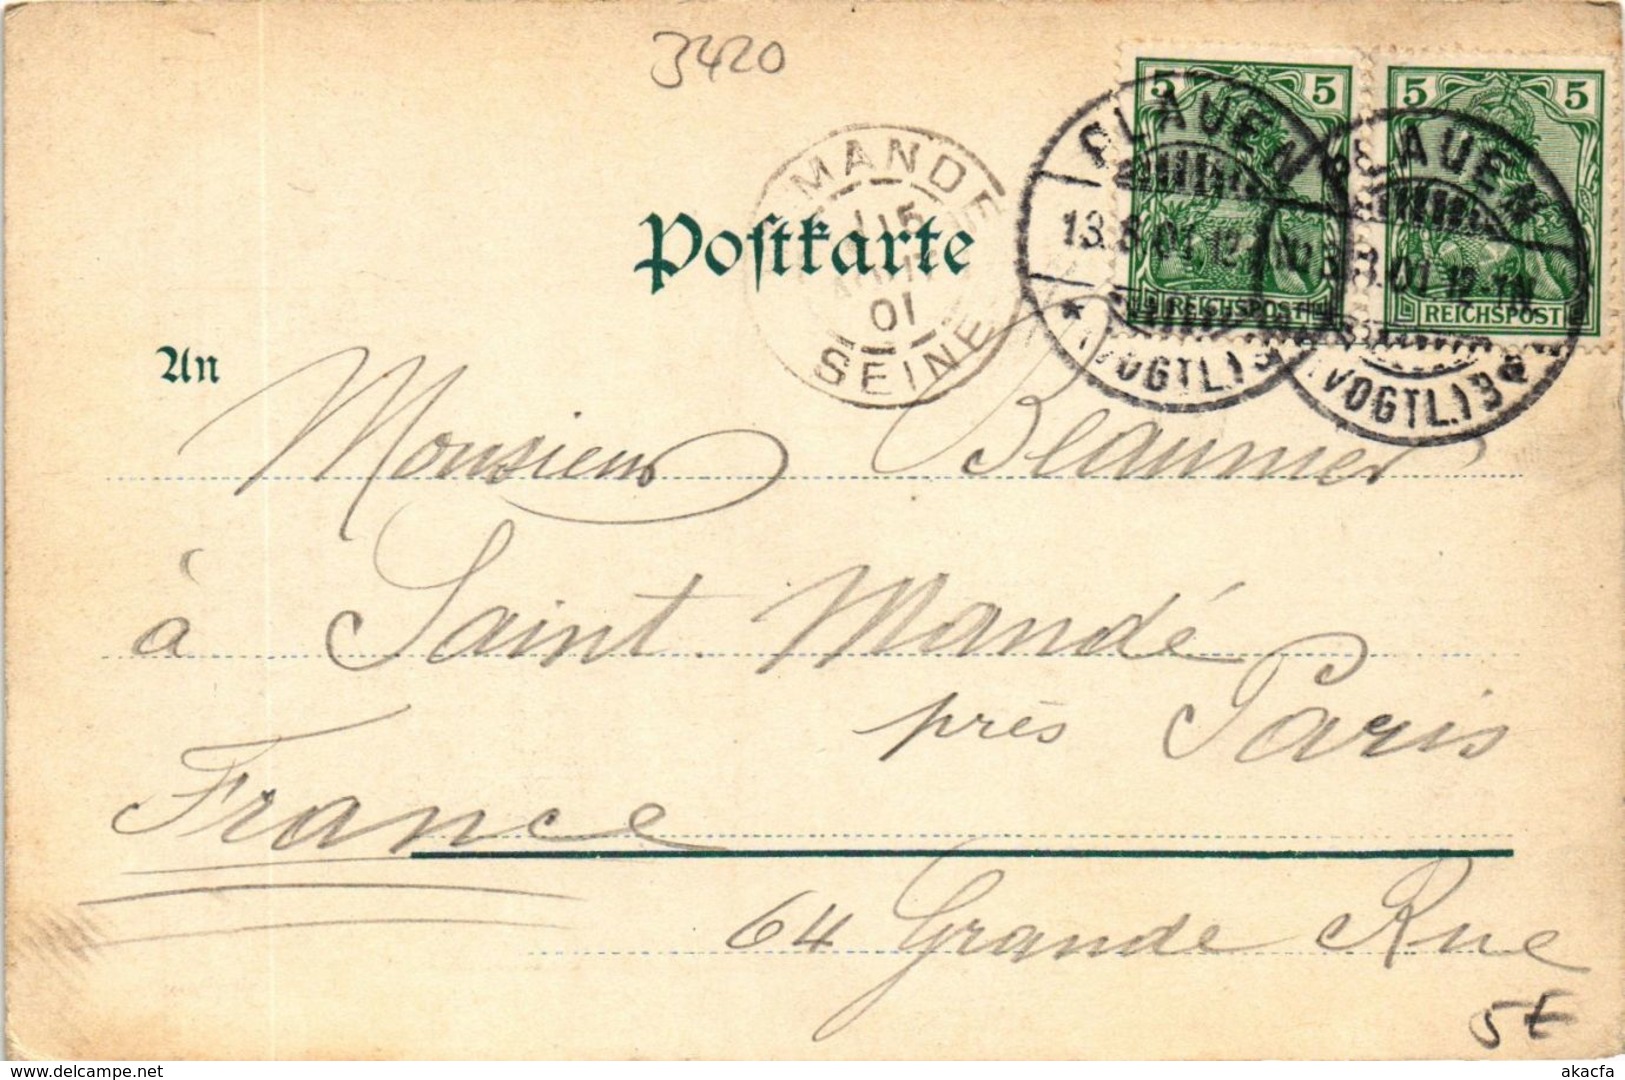 3420
5 5 5 5
PLAUEN PLAUEN
MANDE
115
Postkarte
13.8.01.12-1N 8.01.12-1N
REICHSPOST REICHSPOST
01
* (VOGTL.) 3 (VOGTL.) 3
SEINE
An
Monsieur Beaumier
à Saint. Mandé
près Paris
France
64 Grande Rue
5€
delcampe.net
akacfa